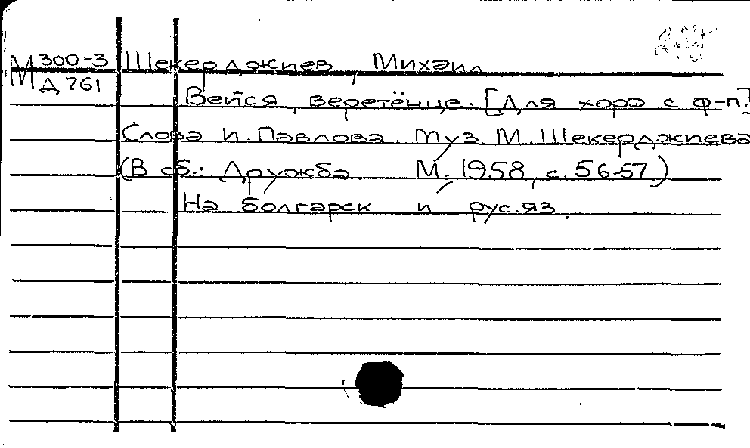 М 300-3 Шекерджиев, Михаил
Д 761
Вейся, веретёнце. [Для хора с ф-п]
Слова И. Павлова. Муз. М. Шекерджиева
(В сб.: Дружба. М. 1958, с. 56-57.)
На болгарск и рус.яз.